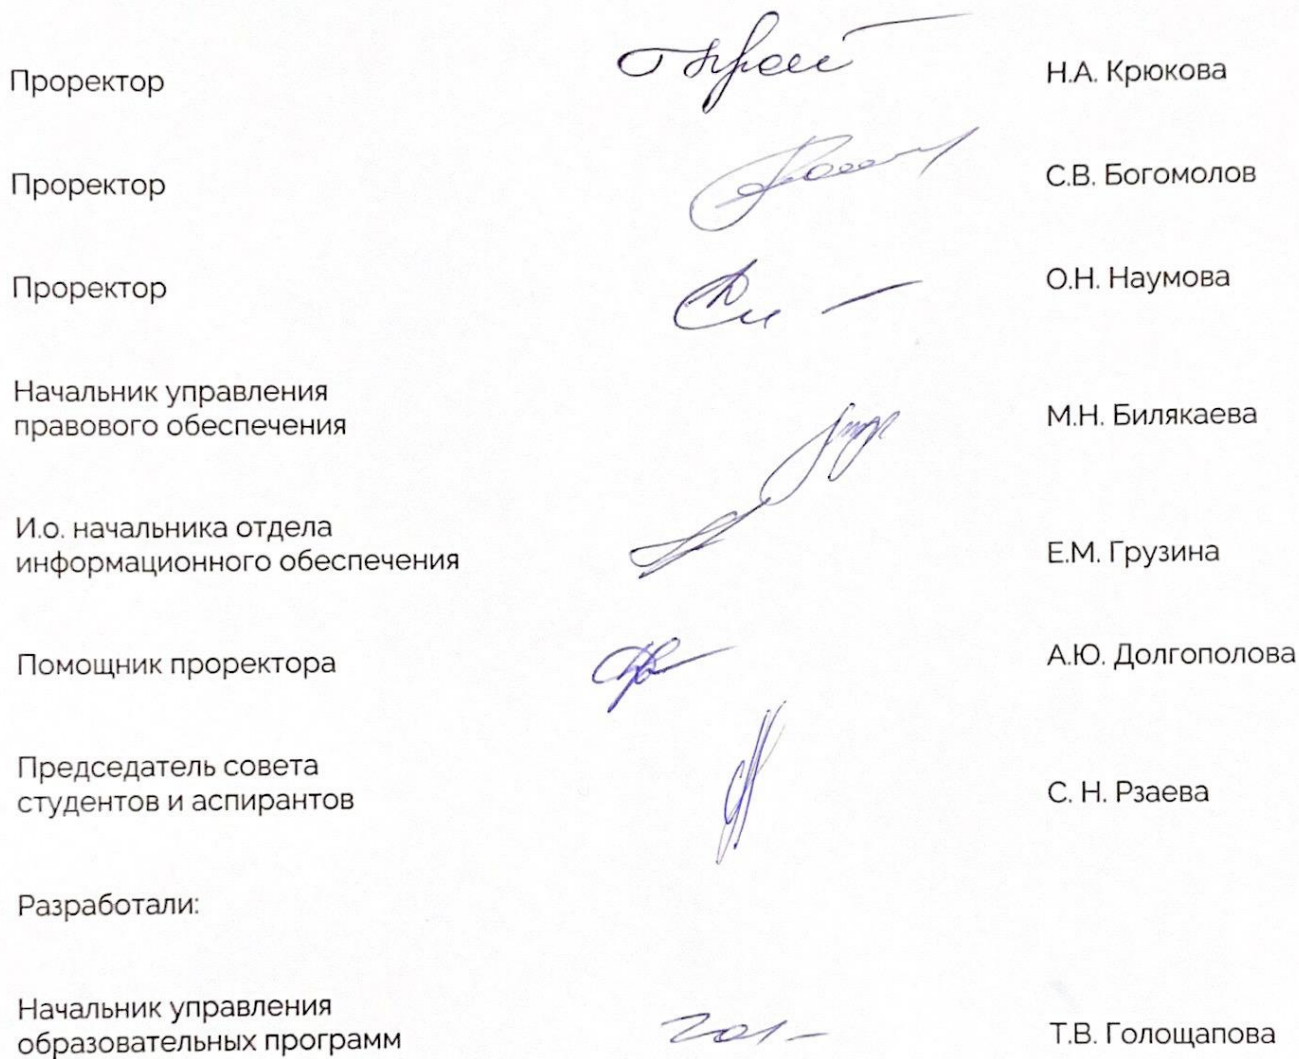 Проректор Н.А. Крюкова
Проректор С.В. Богомолов
Проректор О.Н. Наумова
Начальник управления
правового обеспечения М.Н. Билякаева
И.о. начальника отдела
информационного обеспечения Е.М. Грузина
Помощник проректора А.Ю. Долгополова
Председатель совета
студентов и аспирантов С. Н. Рзаева
Разработали:
Начальник управления
образовательных программ Т.В. Голощапова